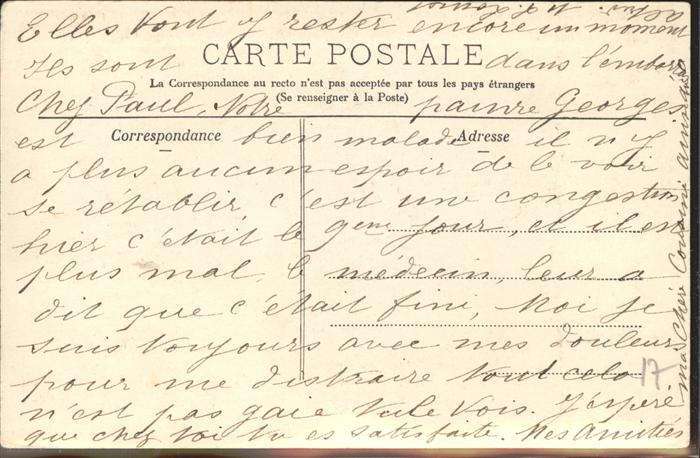 Elles vont y rester encore un moment
CARTE POSTALE
Ils sont dans l'embarr
La Correspondance au recto n'est pas acceptée par tous les pays étrangers
(Se renseigner à la Poste)
Chez Paul, Notre pauvre Georges
Correspondance
Adresse
est bien malade il n'y
a plus aucun espoir de le voir
se rétablir, c'est une congestion
hier c'était le 9eme jour, et il est
plus mal, le médecin, leur a
dit que c'était fini, Moi je
suis toujours avec mes douleurs
pour me distraire tout cela
17
n'est pas gaie tu le vois. J'espère
que chez toi tu es satisfaite. Mes Amitiés
ma Chère Cousine